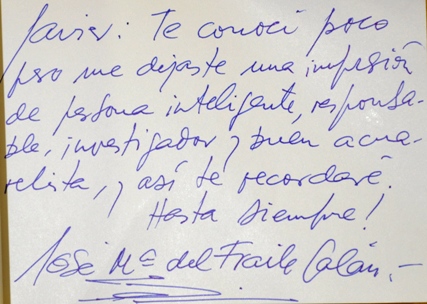 Javier: Te conocí poco
pero me dejaste una impresión
de persona inteligente, responsa-
ble, investigador y buen acua-
relista, y así te recordaré.
Hasta siempre!
José Mª del Fraile Galán.-